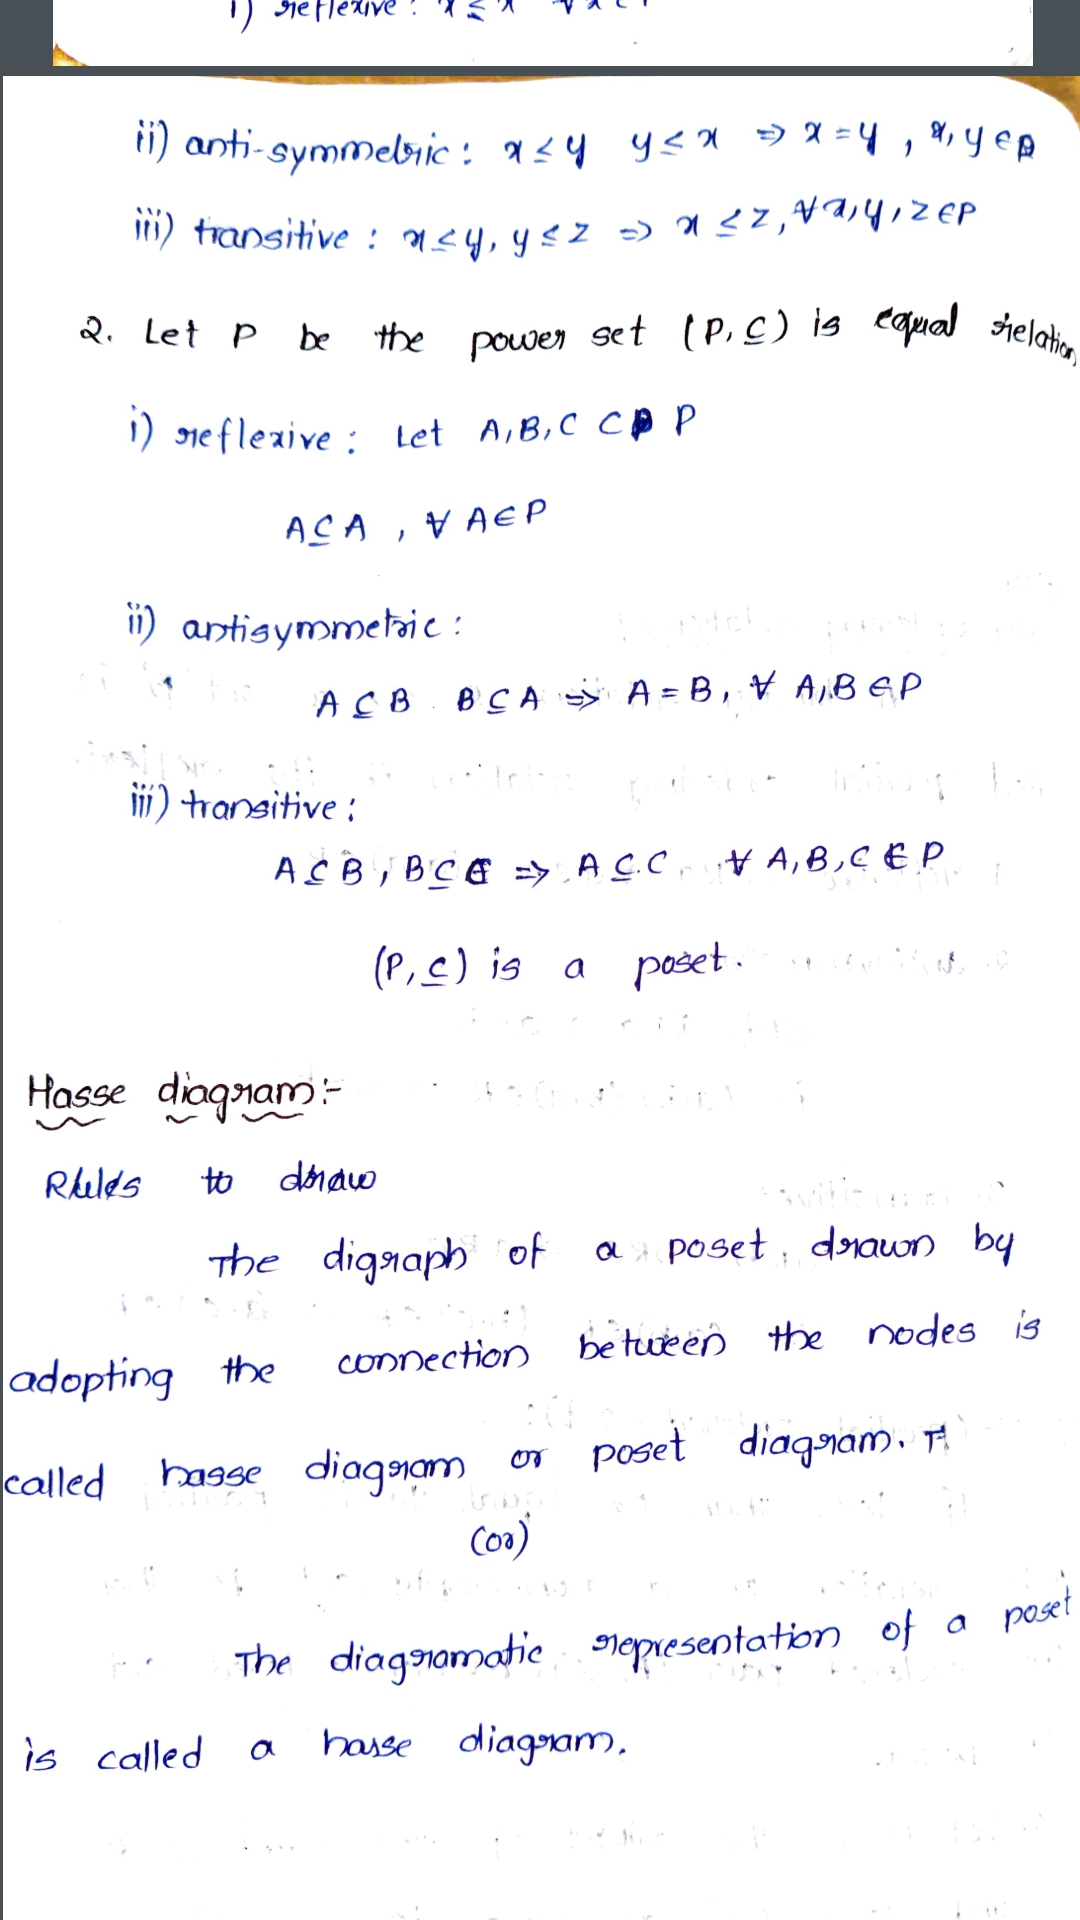 i) reflexive : x ≤ x
ii) anti-symmetric : x ≤ y y ≤ x ⇒ x = y , x, y ∈ P
iii) transitive : x ≤ y, y ≤ z ⇒ x ≤ z, ∀ x, y, z ∈ P
2. Let P be the power set (P, ⊆) is equal relation
i) reflexive : Let A, B, C ⊂ P
A ⊆ A , ∀ A ∈ P
ii) antisymmetric :
A ⊆ B B ⊆ A ⇒ A = B, ∀ A, B ∈ P
iii) transitive :
A ⊆ B, B ⊆ C ⇒ A ⊆ C ∀ A, B, C ∈ P
(P, ⊆) is a poset.
Hasse diagram :-
to draw
The digraph of a poset drawn by
adopting the connection between the nodes is
called hasse diagram or poset diagram.
(or)
The diagramatic representation of a poset
is called a hasse diagram.